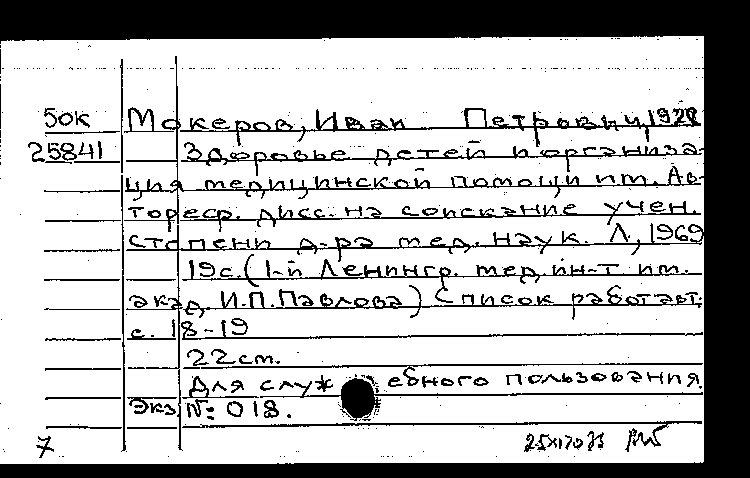 50к Мокеров, Иван Петрович, 192
25841 Здоровье детей и организа-
ция медицинской помощи им. Ав-
тореф. дисс. на соискание учен.
степени д-ра мед. наук. Л., 1969
19с. (1-й Ленингр. мед. ин-т им.
акад. И.П.Павлова) Список работ авт.
с. 18-19
22см.
Для служебного пользования
Экз № 018.
7